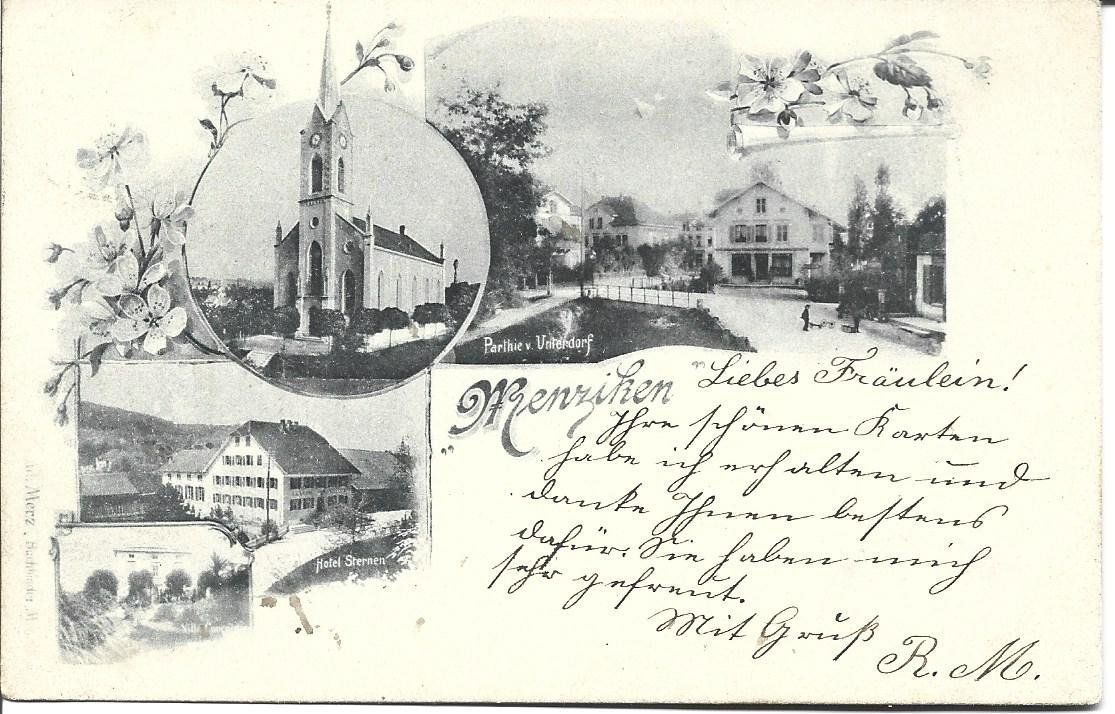 Parthie v. Unterdorf
Menziken
Liebes Fräulein!
Ihre schönen Karten
habe ich erhalten und
danke Ihnen bestens
dafür. Sie haben mich
sehr gefreut.
Mit Gruß
R. M.
Hotel Sternen
Villa
Merz, Buchbinder, M.